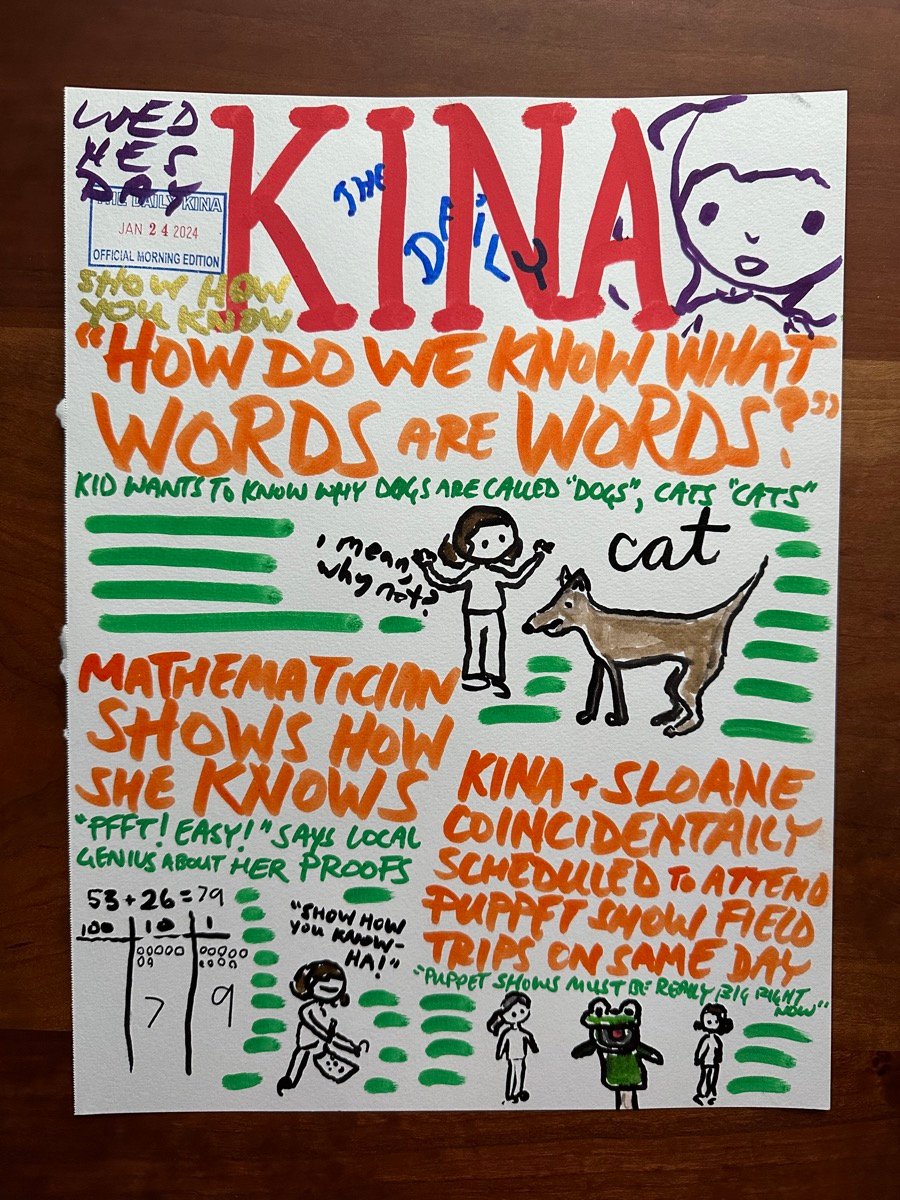 WED
NES
DAY
THE DAILY KINA
JAN 24 2024
OFFICIAL MORNING EDITION
SHOW HOW
YOU KNOW
THE
DAiLY
KINA
"HOW DO WE KNOW WHAT
WORDS ARE WORDS?"
KID WANTS TO KNOW WHY DOGS ARE CALLED "DOGS", CATS "CATS"
I mean,
why not?
cat
MATHEMATICIAN
SHOWS HOW
SHE KNOWS
"PFFT! EASY!" SAYS LOCAL
GENIUS ABOUT HER PROOFS
53+26=79
100 10 1
7 9
"SHOW HOW
YOU KNOW-
HA!"
KINA + SLOANE
COINCIDENTALLY
SCHEDULED TO ATTEND
PUPPET SHOW FIELD
TRIPS ON SAME DAY
"PUPPET SHOWS MUST BE REALLY BIG RIGHT
NOW"